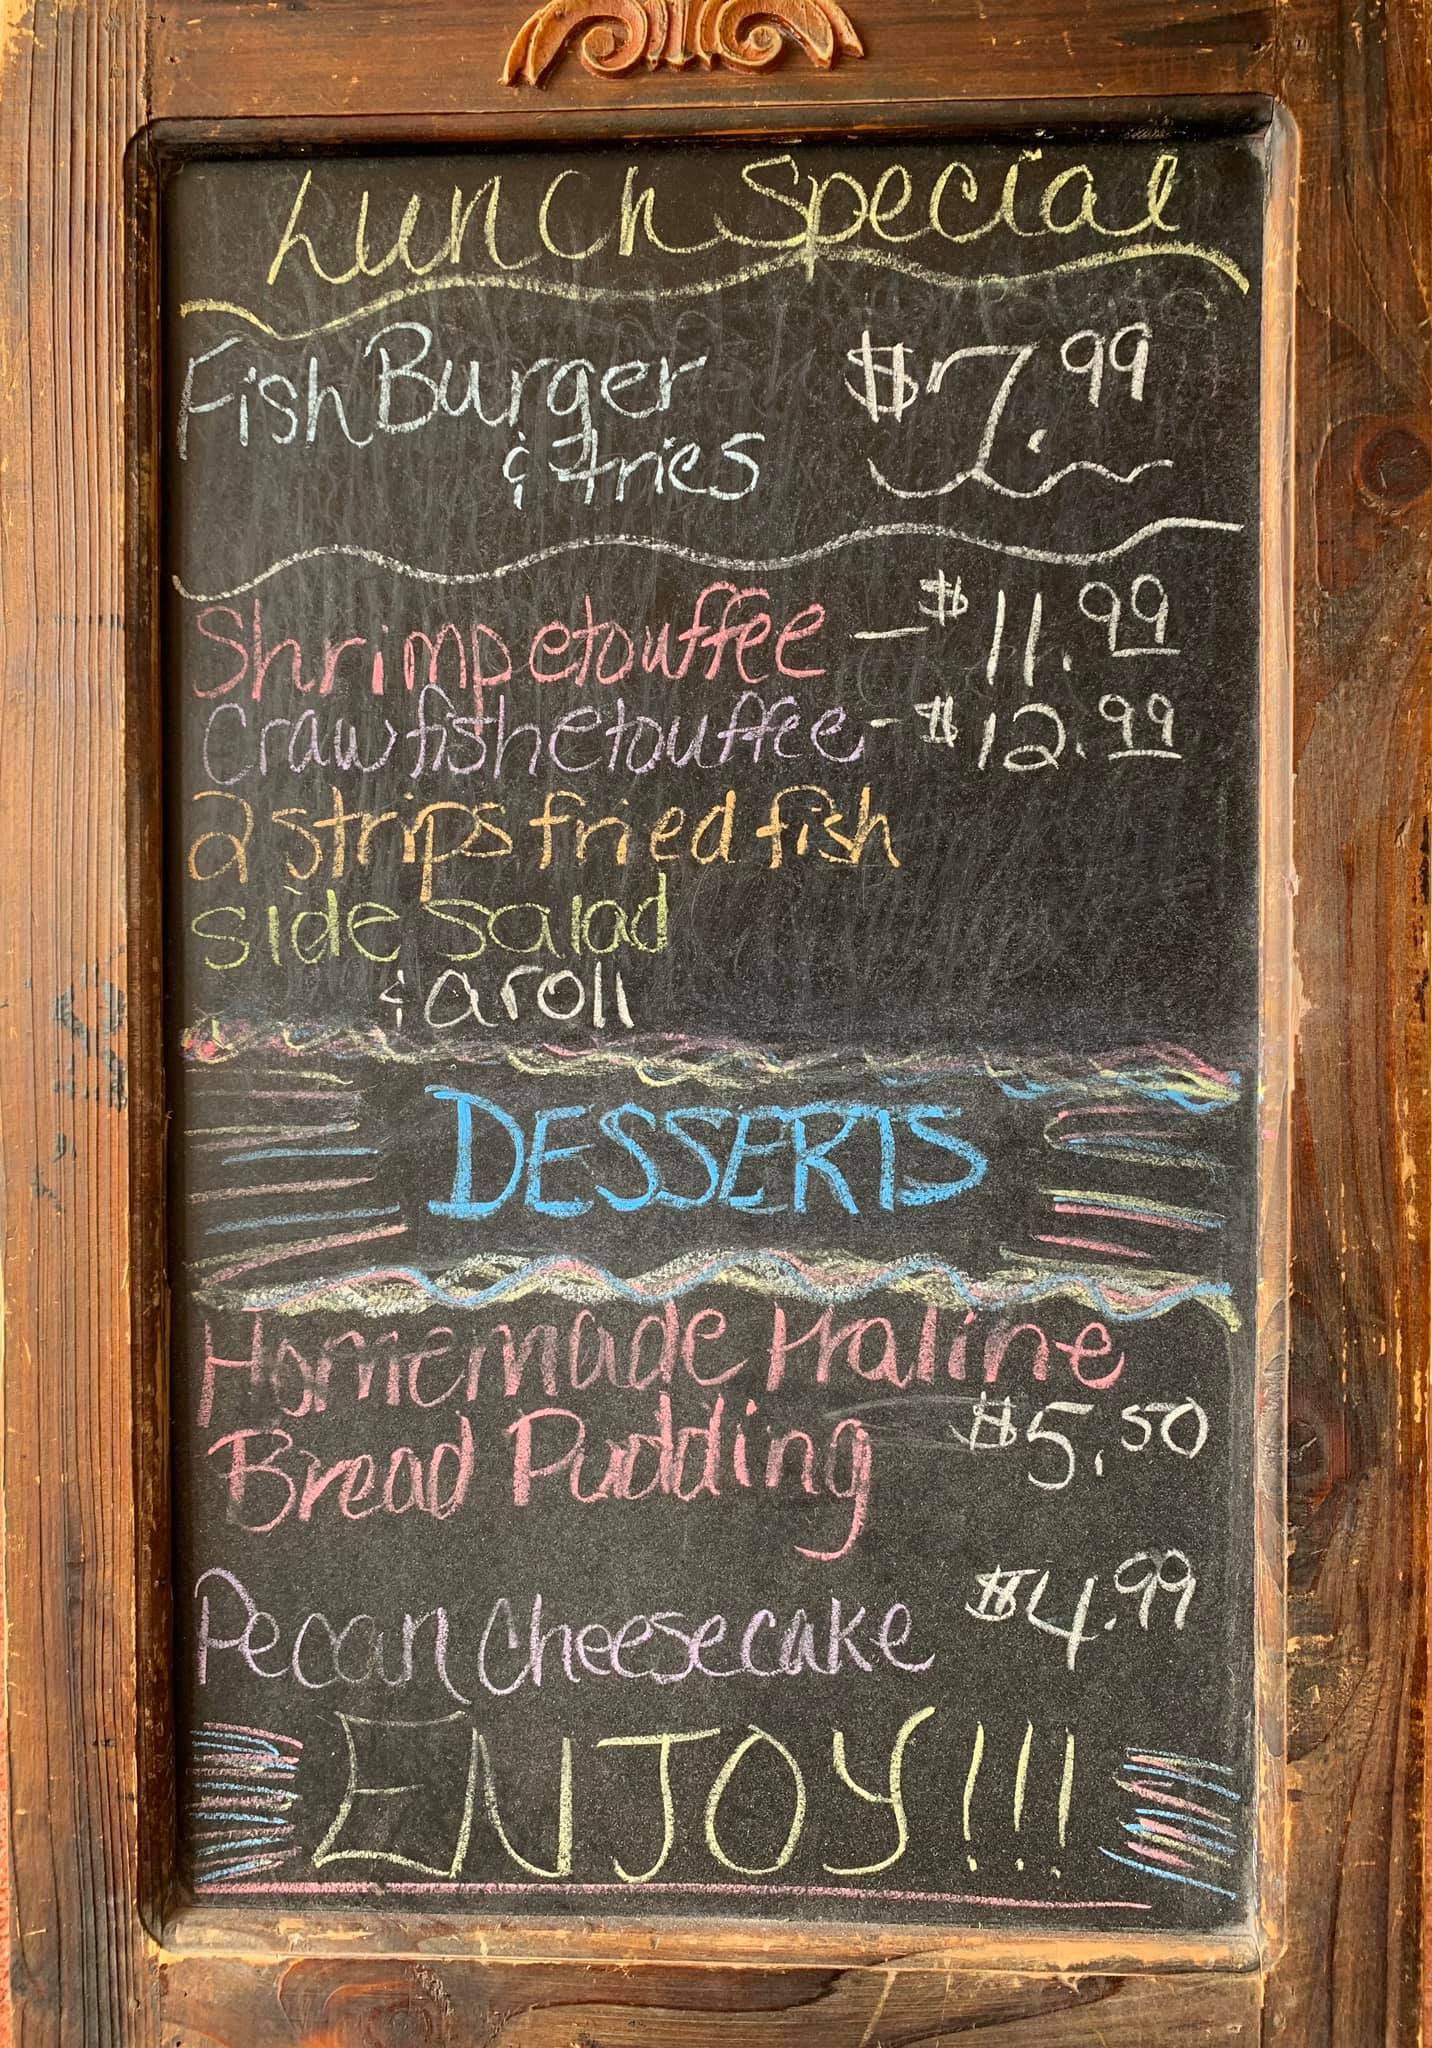 Lunch Special
Fish Burger $7.99
& fries
Shrimp etouffee - $11.99
Crawfish etouffee - $12.99
2 strips fried fish
side salad
& a roll
DESSERTS
Homemade Praline
Bread Pudding $5.50
Pecan Cheesecake $4.99
ENJOY!!!